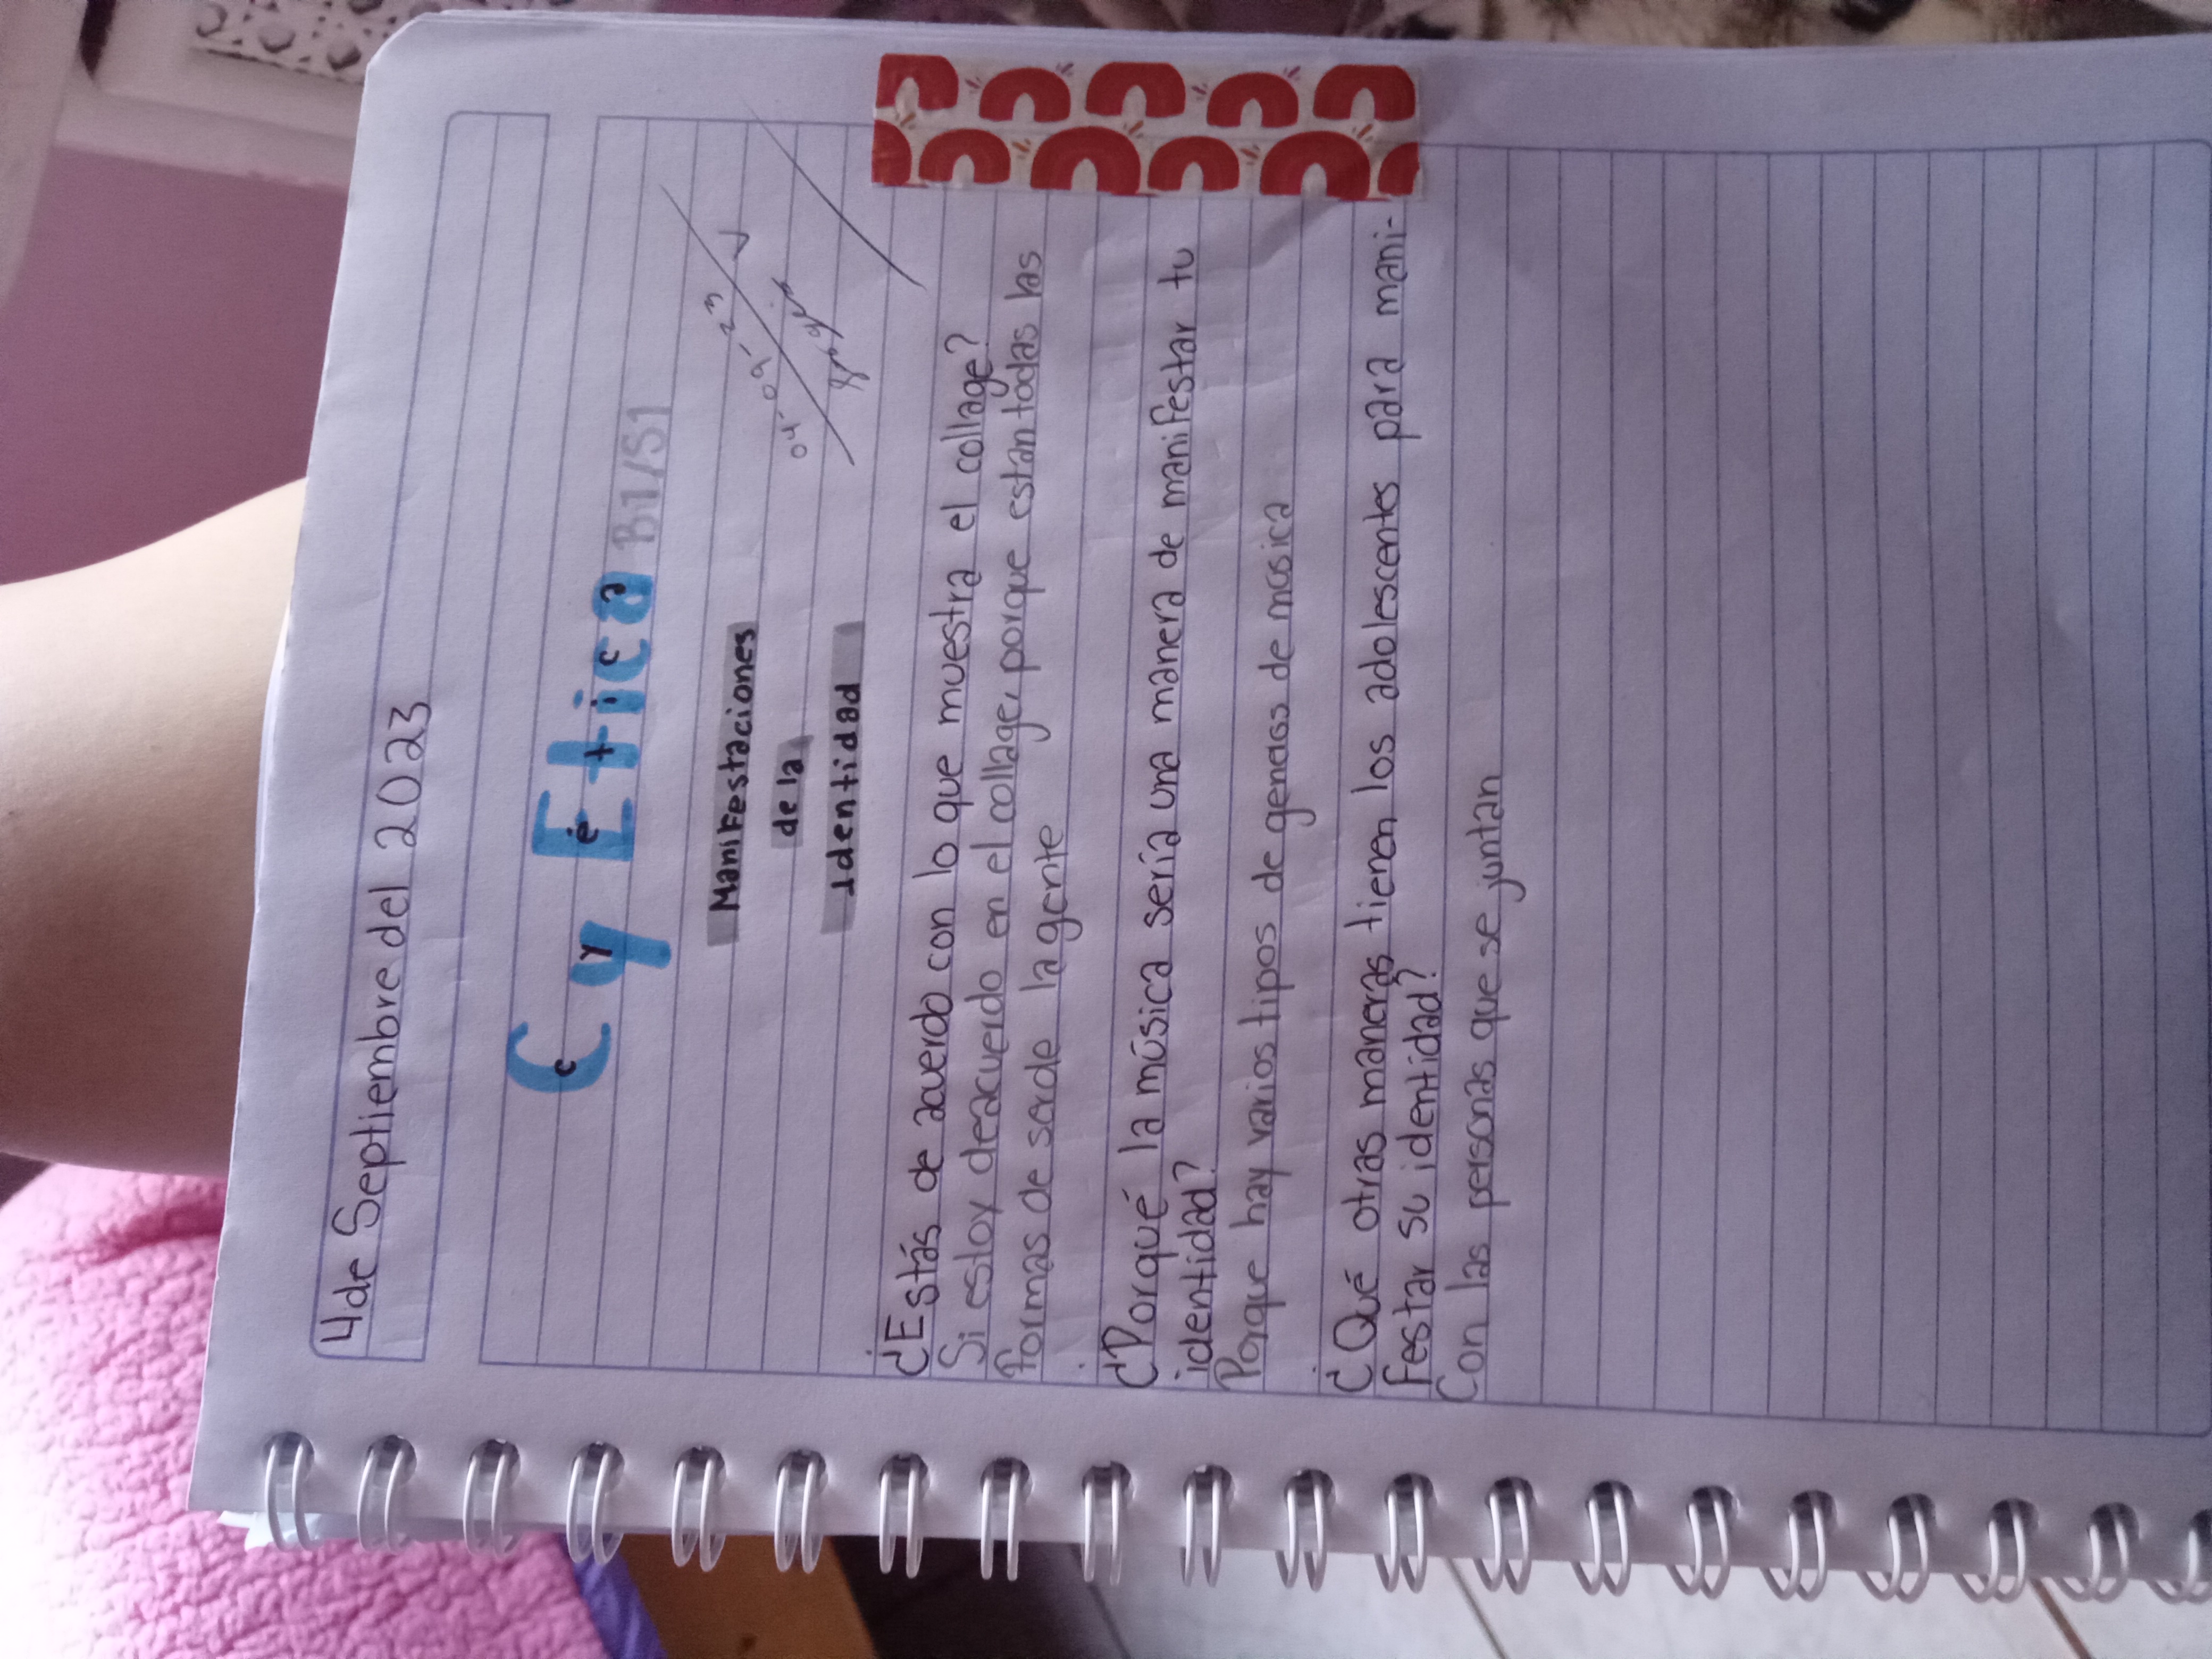 4 de Septiembre del 2023
C y Etica B1/S1
c y é t i c a
Manifestaciones
de la
Identidad
04-09-23
¿Estás de acuerdo con lo que muestra el collage?
Si estoy deacuerdo en el collage, porque estan todas las
formas de serde la gente
¿Porqué la música sería una manera de manifestar tu
identidad?
Porque hay varios tipos de de música
¿Qué otras maneras tienen los adolescentes para mani-
festar su identidad?
Con las personas que se juntan